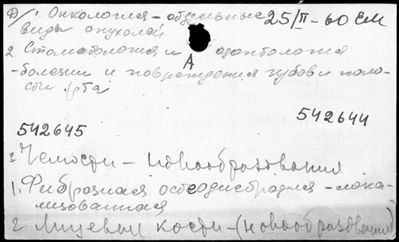 Ф/ 1. Онкология - отдельные 25/II-60 ЕМ
виды опухолей
2. Стоматология и одонтология
А
- болезни и повреждения зубов и поло-
сти рта
542644
542645
2 Челюсти - новообразования
1. Фиброзная остеодистрофия - лока-
лизованная
2 Лицевые кости - (новообразования)